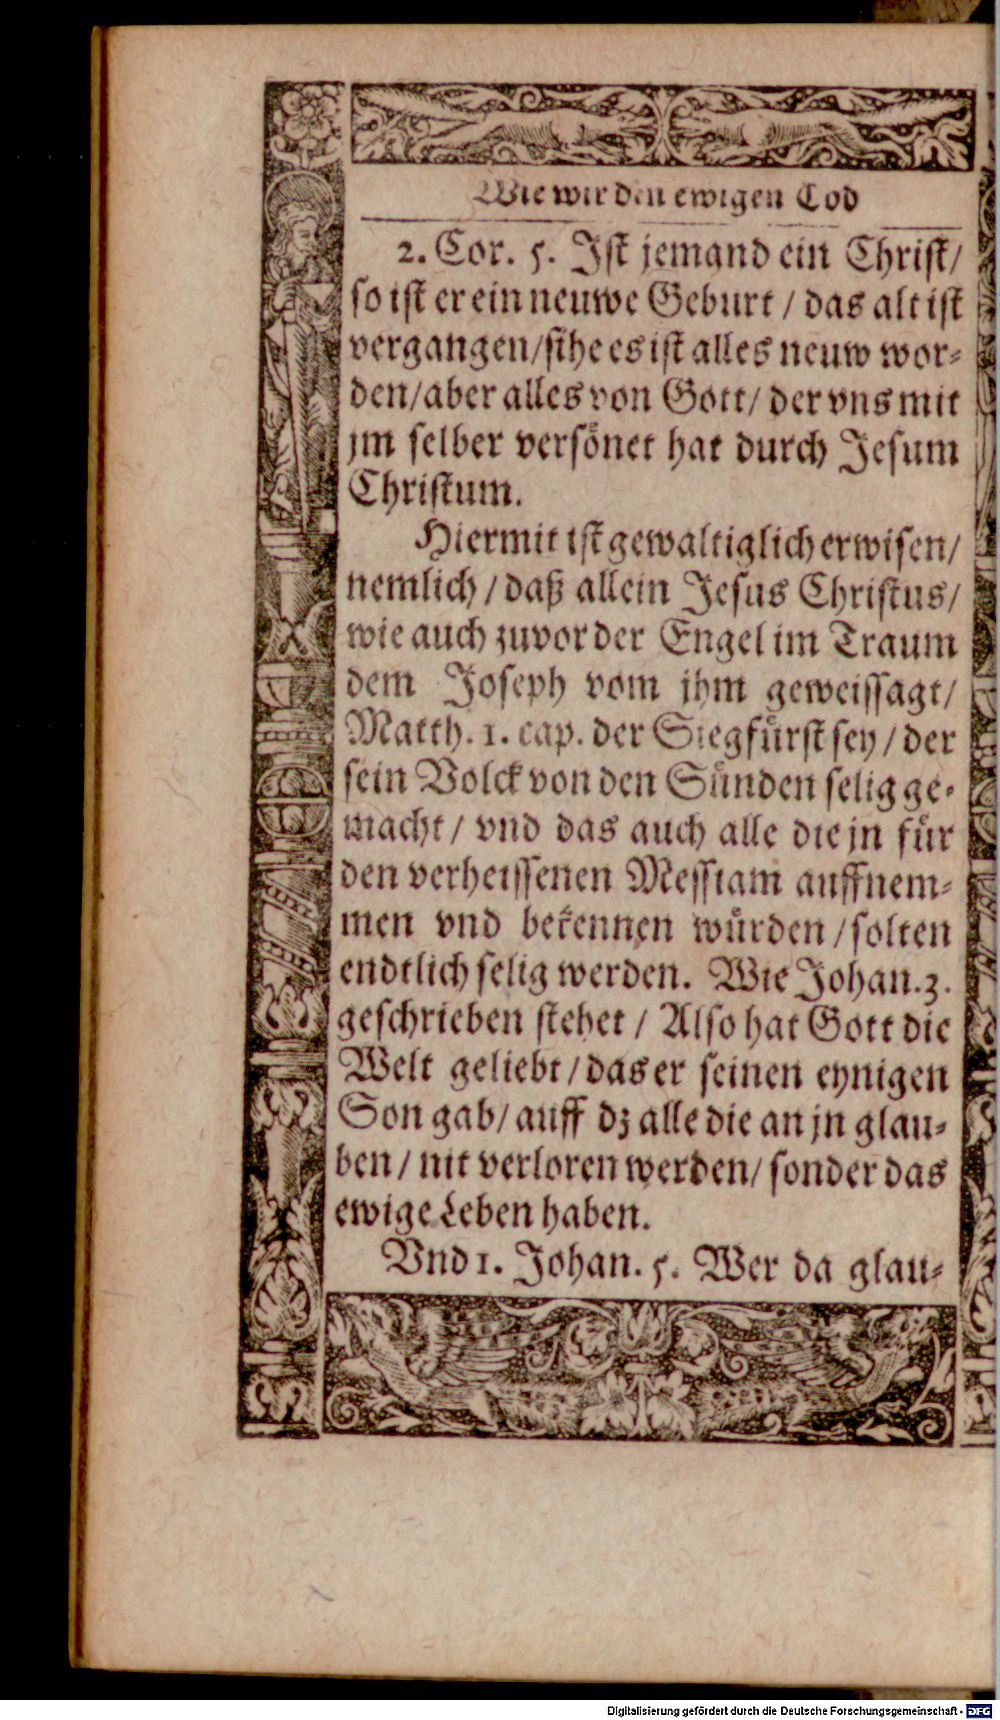 Wie wir den ewigen Tod
2. Cor. 5. Ist jemand ein Christ/
so ist er ein neuwe Geburt / das alt ist
vergangen/sihe es ist alles neuw wor-
den/aber alles von Gott/ der vns mit
jm selber versönet hat durch Jesum
Christum.
Hiermit ist gewaltiglich erwisen/
nemlich / daß allein Jesus Christus/
wie auch zuvor der Engel im Traum
dem Joseph vom jhm geweissagt/
Matth. 1. cap. der Siegfürst sey / der
sein Volck von den Sünden selig ge-
macht / vnd das auch alle die jn für
den verheissenen Messiam auffnem-
men vnd bekennen würden /solten
endtlich selig werden. Wie Johan. 3.
geschrieben stehet / Also hat Gott die
Welt geliebt / das er seinen eynigen
Son gab/ auff dz alle die an jn glau-
ben / nit verloren werden/ sonder das
ewige Leben haben.
Vnd 1. Johan. 5. Wer da glau-
Digitalisierung gefördert durch die Deutsche Forschungsgemeinschaft - DFG